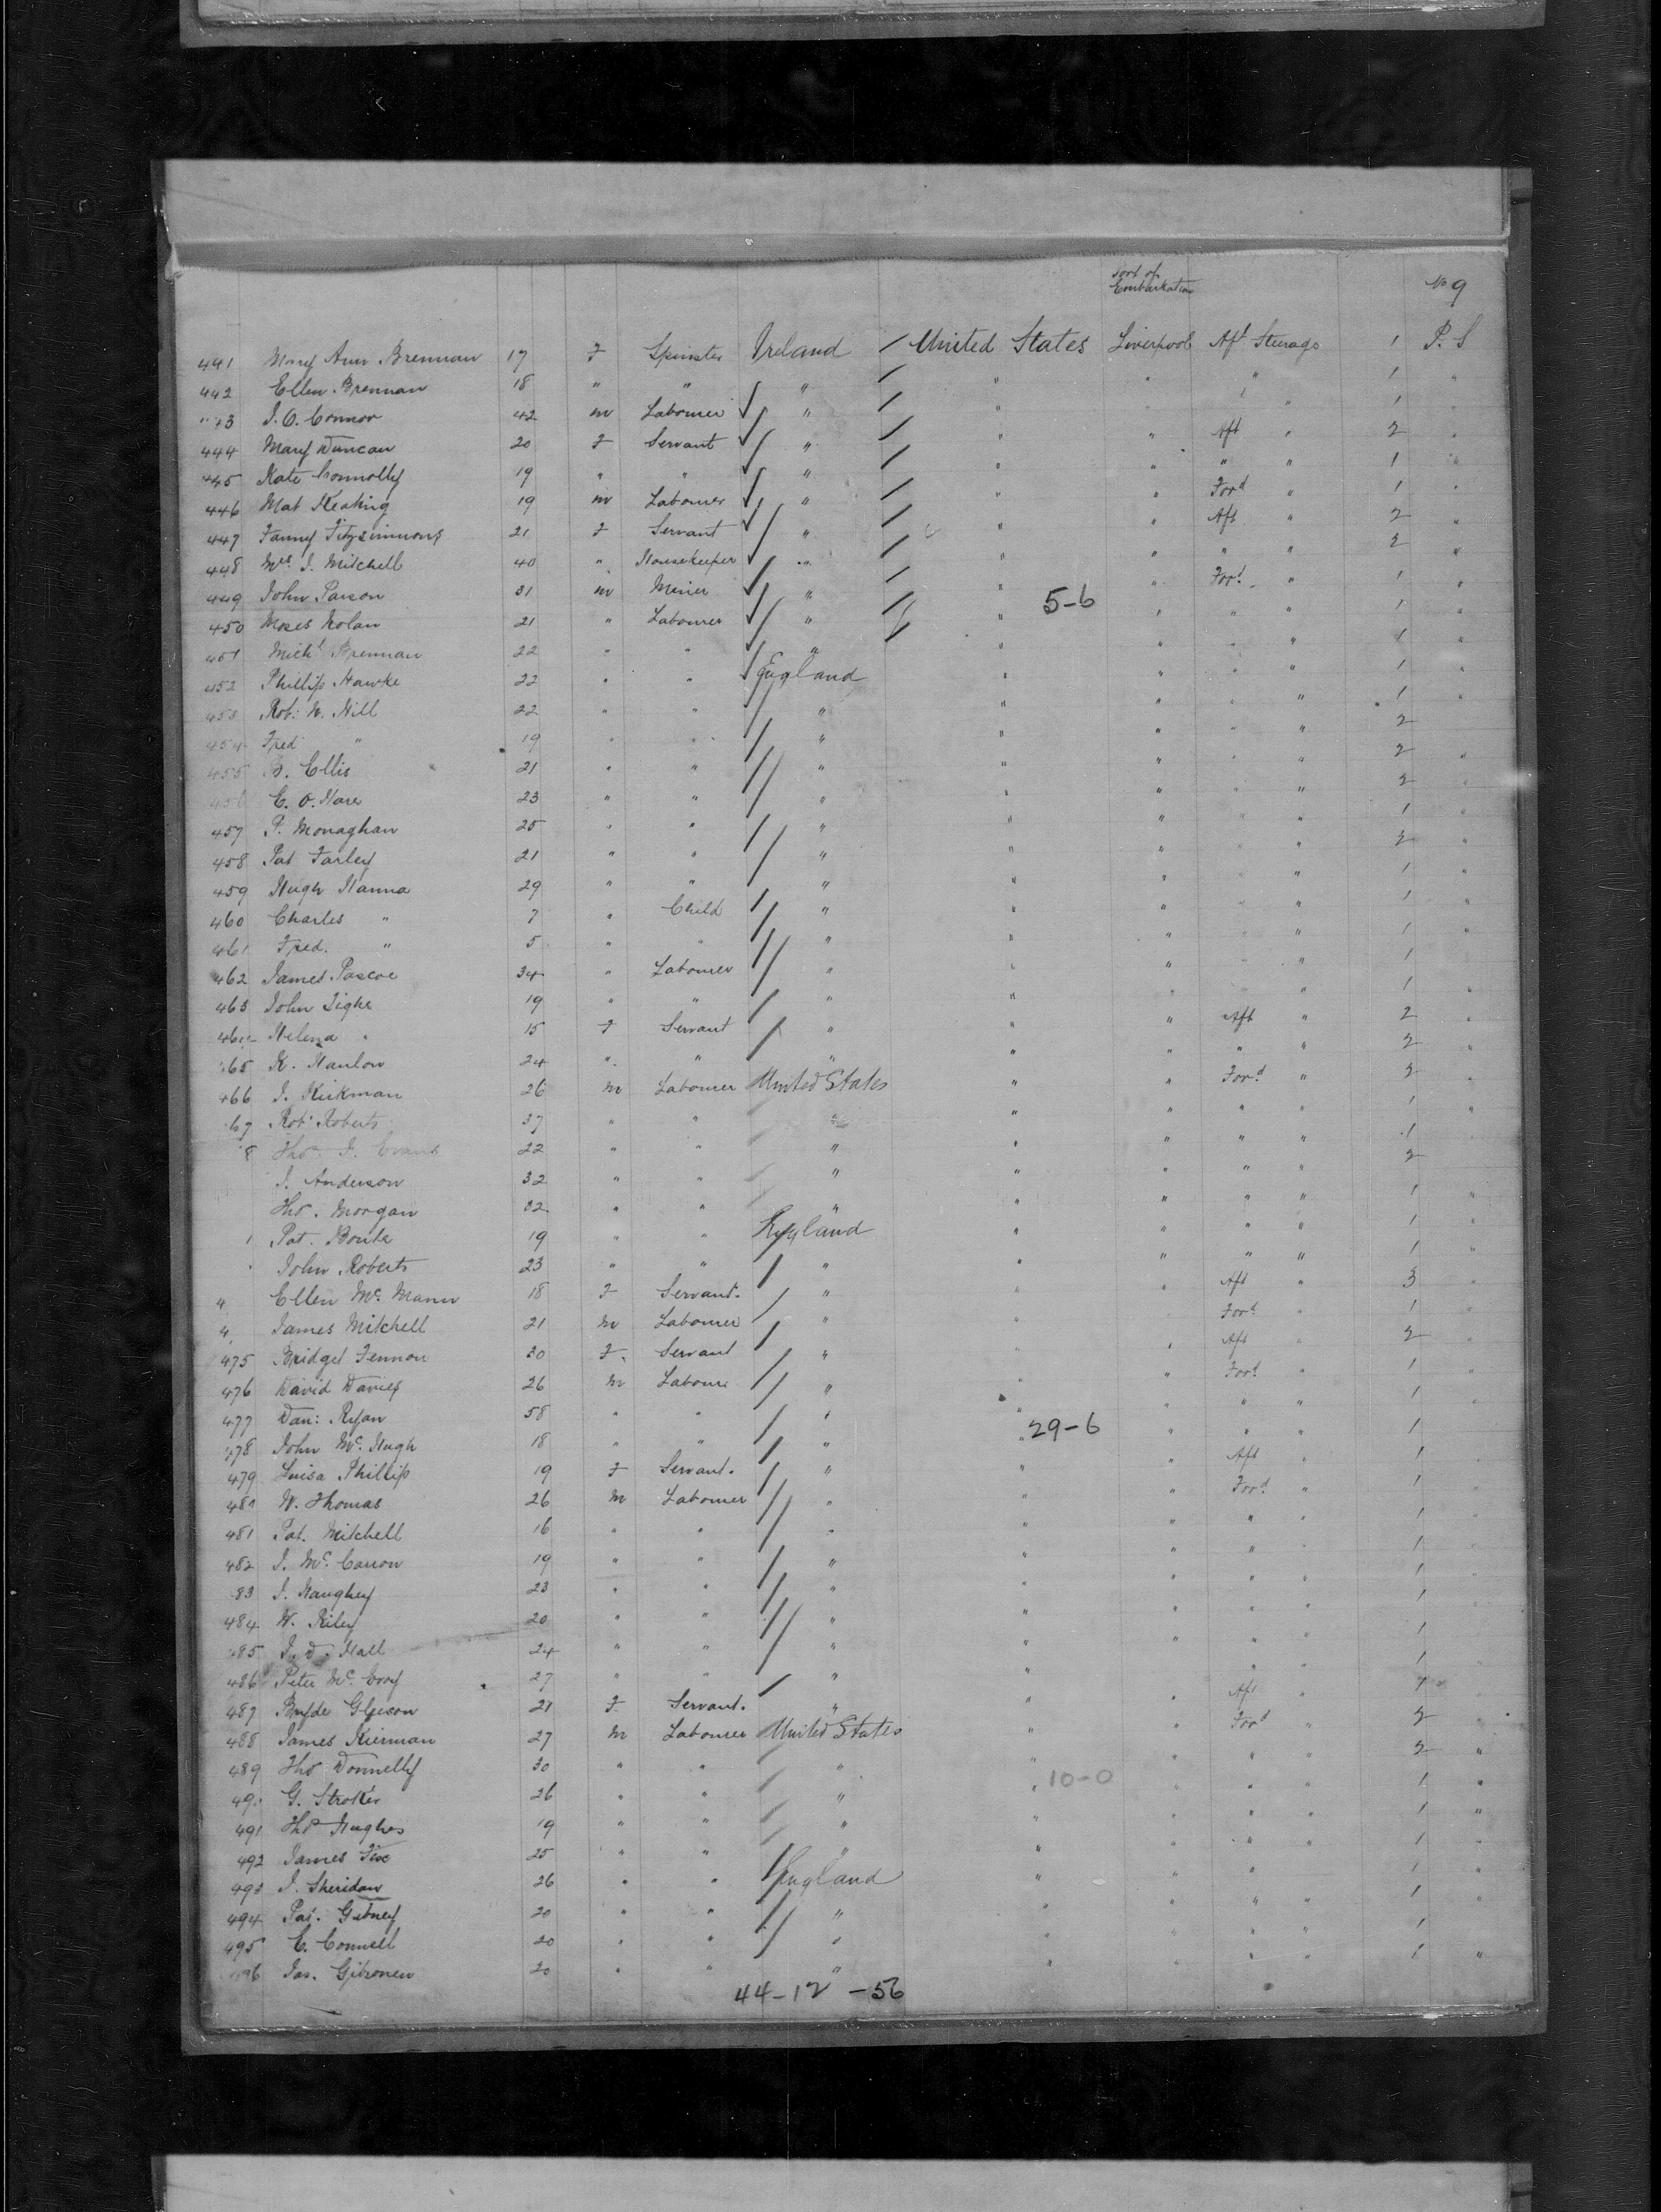 Port of
Embarkation
No 9
441 Mary Ann Brennan 17 F Spinster Ireland / United States Liverpool Aft Sterage 1 P. S
442 Ellen Brennan 18 " " " " " " 1 "
43 J. O. Connor 42 m Labourer " " " " 1
444 Mary Duncan 20 F Servant " " " Aft " 2 "
445 Kate Connolly 19 " " " " " " " 1 "
446 Mat Keating 19 m Labourer " " " Ford " 1 "
447 Fanny Fitzsimmons 21 F Servant " " " Aft " 2 "
448 Mrs J. Mitchell 40 " Housekeeper " " " " " 2 "
449 John Parson 31 m Miner " " " Ford " 1 "
5-6
450 Moses Nolan 21 " Labourer " " " " " 1 "
451 Michl Brennan 22 " " " " " " " 1 "
452 Phillip Hawke 22 " " England " " " " 1 "
453 Rob: W. Hill 22 " " " " " " " 1 "
454 Fred " 19 " " " " " " " 2
455 B. Ellis 21 " " " " " " " 2 "
456 E. O. Hare 23 " " " " " " " 2 "
457 P. Monaghan 25 " " " " " " " 1 "
458 Pat Farley 21 " " " " " " " 2 "
459 Hugh Hanna 29 " " " " " " " 1 "
460 Charles " 7 " Child " " " " " 1 "
461 Fred. " 5 " " " " " " " 1 "
462 James Pascoe 34 " Labourer " " " " " 1
463 John Tighe 19 " " " " " " " 1 "
464 Helena " 15 F Servant " " " Aft " 2 "
465 K. Hanlon 24 " " " " " " " 2 "
466 J. Kirkman 26 m Labourer United States " " Ford " 2 "
67 Robt Roberts 37 " " " " " " " 1 "
8 Thos J. Evans 22 " " " " " " " 1
J. Anderson 32 " " " " " " " 2
Thos. Morgan 32 " " " " " " " 1 "
1 Pat. 19 " " England " " " " 1 "
John Roberts 23 " " " " " " " 1 "
Ellen Mc. Mann 18 F Servant. " " " Aft " 3 "
James Mitchell 21 m Labourer " " " Ford " 1 "
475 Bridget Fennon 30 F. Servant " " " Aft " 2 "
476 David Davies 26 m Labour " " " Ford " 1 "
477 Dan: Ryan 58 " " " " " " " 1 "
29-6
478 John Mc. Hugh 18 " " " " " " " 1
479 Luisa Phillip 19 F Servant. " " " Aft " 1 "
480 W. Thomas 26 m Labourer " " " Ford " 1 "
481 Pat. Mitchell 16 " " " " " " " 1 "
482 J. Mc. Carron 19 " " " " " " " 1 "
83 J. Haughey 23 " " " " " " " 1 "
484 W. Riley 20 " " " " " " " 1 "
485 J. D. Hall 24 " " " " " " " 1 "
486 Peter Mc. Evoy 27 " " " " " " 1 "
487 Gleeson 21 F Servant. " " " Aft " 1 "
488 James Kiernan 27 m Labourer United States " " Ford " 2 "
489 Thos Donnelly 30 " " " " " " " 2 "
10-0
490 G. Stroker 26 " " " " " " " 1 "
491 Thos Hughes 19 " " " " " " " 1 "
492 James Fix 25 " " " " " " " 1 "
493 J. Sheridan 26 " " England " " " 1 "
494 Pat. Gibney 20 " " " " " " " 1 "
495 C. Connell 20 " " " " " " " 1
496 Jas. 20 " " " " " " " 1 "
44-12 -56